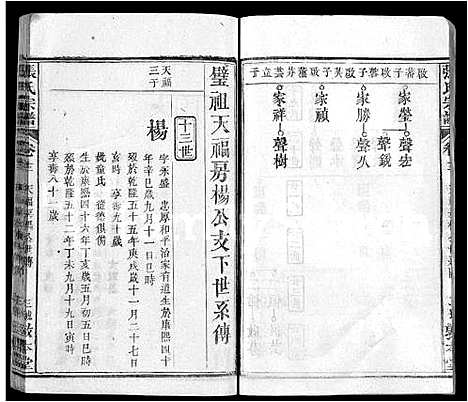 張氏宗譜
卷
啟子
家鑾
聲宏
聲鉞
家勝
聲久
家禎
家祥
聲樹
敦本堂
璧祖天福房楊公支下世系傳
十三世
天福
三子
楊
字永盛 忠厚和平治家有道生於康熙四十
年辛巳歲九月十一日巳時
歿於乾隆五十五年庚戌歲十一月二十七日
亥時 享壽九十歲
娶童氏 從德俱備
生於康熙四十六年丁亥歲五月初五日巳時
歿於乾隆五十二年丁未九月十九日寅時
享壽八十一歲
張氏宗譜
卷
敦本堂